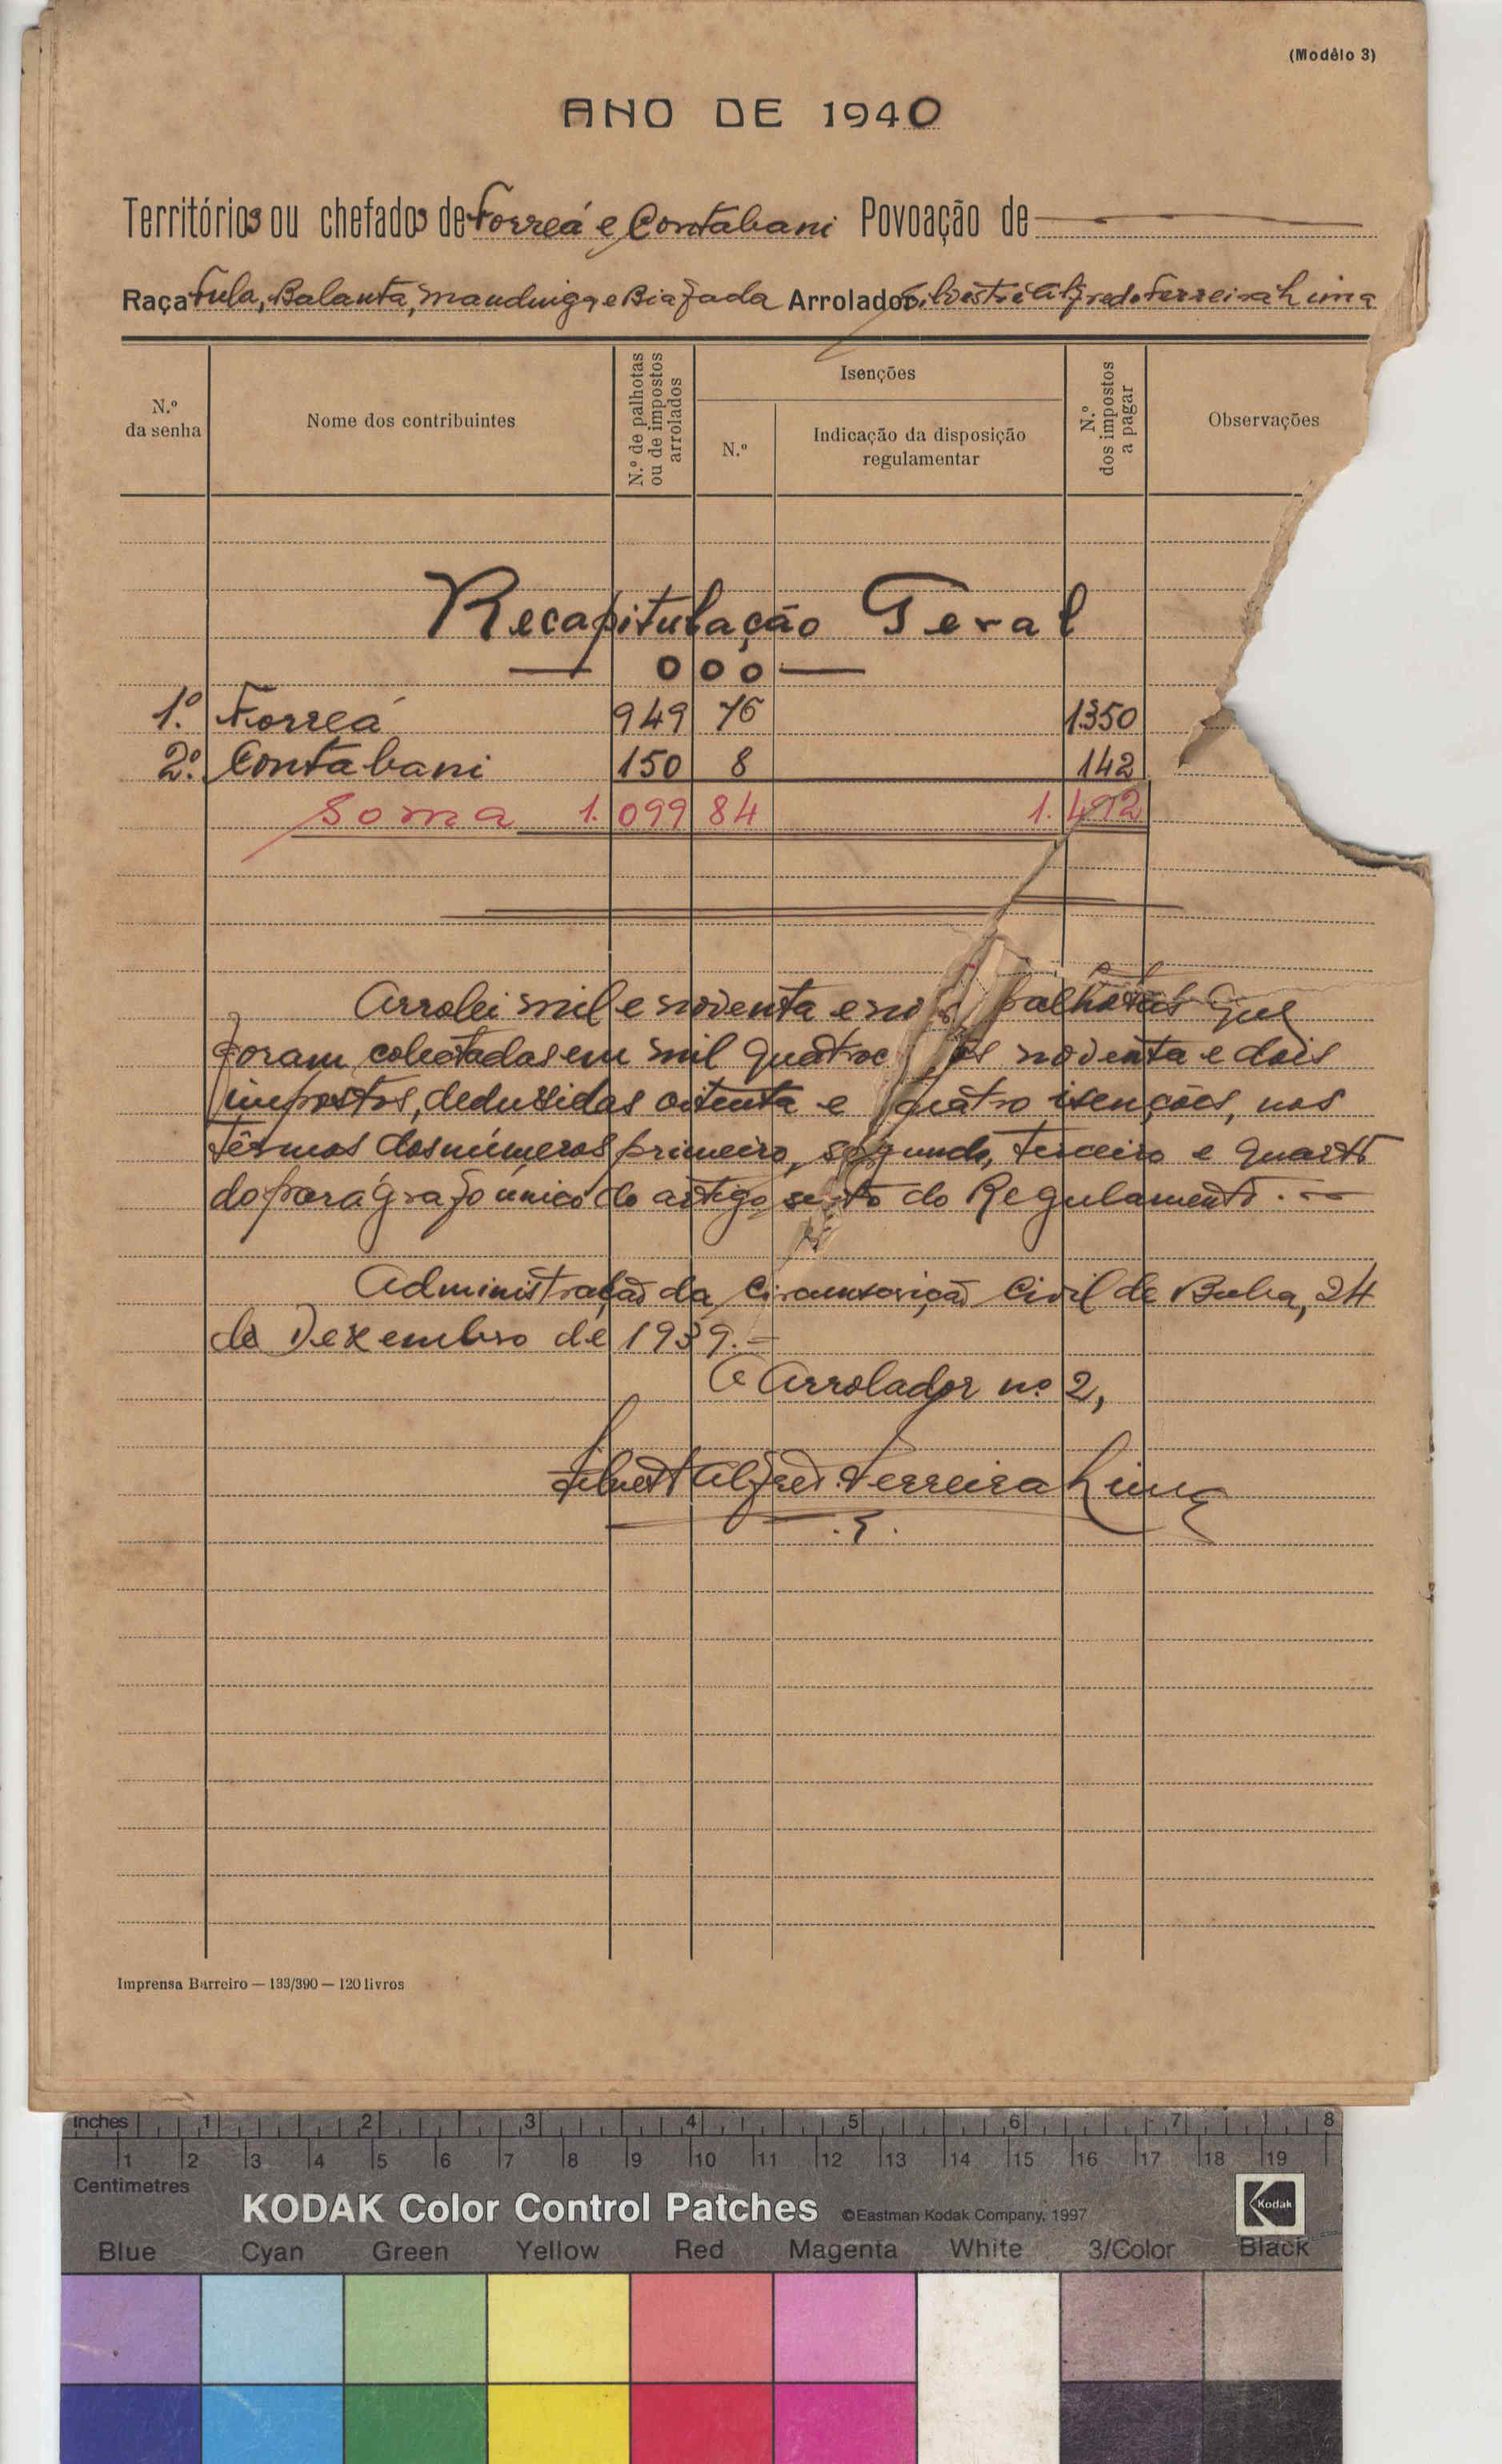 (Modêlo 3)
ANO DE 1940
Territórios ou chefados de Forreá e Contabani Povoação de
Raça Fula, Balanta, Mandinga, e Biafada Arrolador Silvestre Alfredo Ferreira Lima
N.º da senha
Nome dos contribuintes
N.º de palhotas ou de impostos arrolados
Isenções
N.º
Indicação da disposição regulamentar
N.º dos impostos a pagar
Observações
Recapitulação Geral
— 000 —
1.º Forreá 949 76 1350
2.º Contabani 150 8 142
Soma 1.099 84 1.492
Arrolei mil e noventa e no palhotas que
foram colectadas em mil quatroc os noventa e dois
impostos, deduzidas oitenta e quatro isenções, nos
têrmos dos números primeiro, segundo, terceiro e quarto
do parágrafo único do artigo sexto do Regulamento. —
Administração da Circunscrição Civil de Buba, 24
de Dezembro de 1939. —
O Arrolador n.º 2,
Silvestre Alfredo Ferreira Lima
Imprensa Barreiro — 133/390 — 120 livros
Inches 1 2 3 4 5 6 7 8
1 2 3 4 5 6 7 8 9 10 11 12 13 14 15 16 17 18 19
Centimetres
KODAK Color Control Patches ©Eastman Kodak Company, 1997 Kodak
Blue Cyan Green Yellow Red Magenta White 3/Color Black